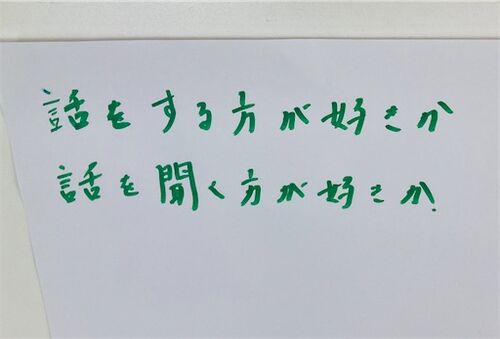 話をする方が好きか
話を聞く方が好きか.